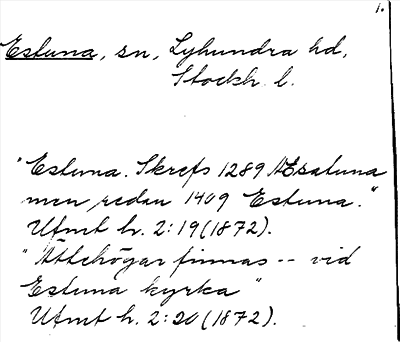 1.
Estuna, sn, Lyhundra hd,
Stockh. l.
"Estuna. Skrefs 1289 AEsatuna
men redan 1409 Estuna."
Ufmt h. 2:19 (1872).
"Ättehögar finnas -- vid
Estuna kyrka"
Ufmt h. 2:20 (1872).